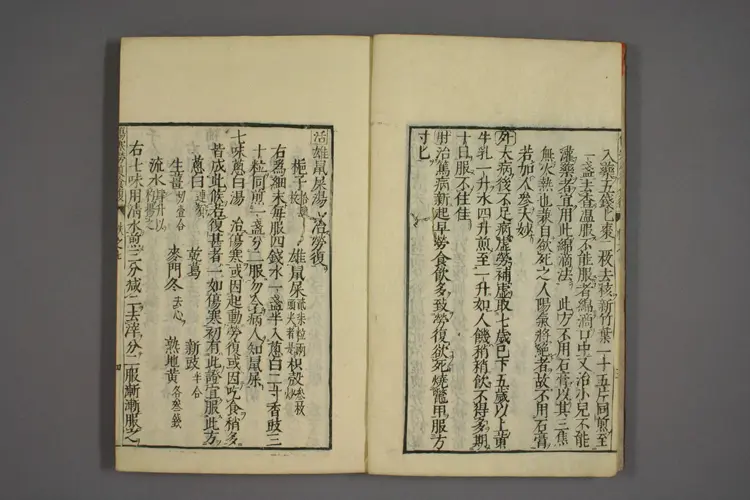 入藥五錢匕棗二枚去核新竹葉二十五片同煎至
一盞去查溫服不能服者綿滴口中又治小兒不能
灌藥者宜用此綿滴法 此方不用石膏以其三焦
無火熱也兼自欲死之人陽氣將絕者故不用石膏
若加人參大妙
外大病後不足病虛勞補虛取七歲已下五歲以上黃
牛乳一升水四升煎至一升如人饑稍稍飲不得多期
十日服不住佳
肘治篤病新起早勞食飲多致勞復欲死燒鱉甲服方
寸匕
活雄鼠屎湯 治勞復
梔子 雄鼠屎 枳殼
右為細末每服四錢水一盞半入蔥白二寸香豉三
十粒同煎一盞分二服勿令病人知鼠屎
七味蔥白湯 治傷寒或因起動勞復或因吃食稍多
皆成此候若復甚者一如傷寒初有此證宜服此方
蔥白連鬚 乾葛 新豉半合
生薑 麥門冬去心 熟地黃各三錢
流水
右七味用清水煎三分減二去滓分二服漸漸服之
四